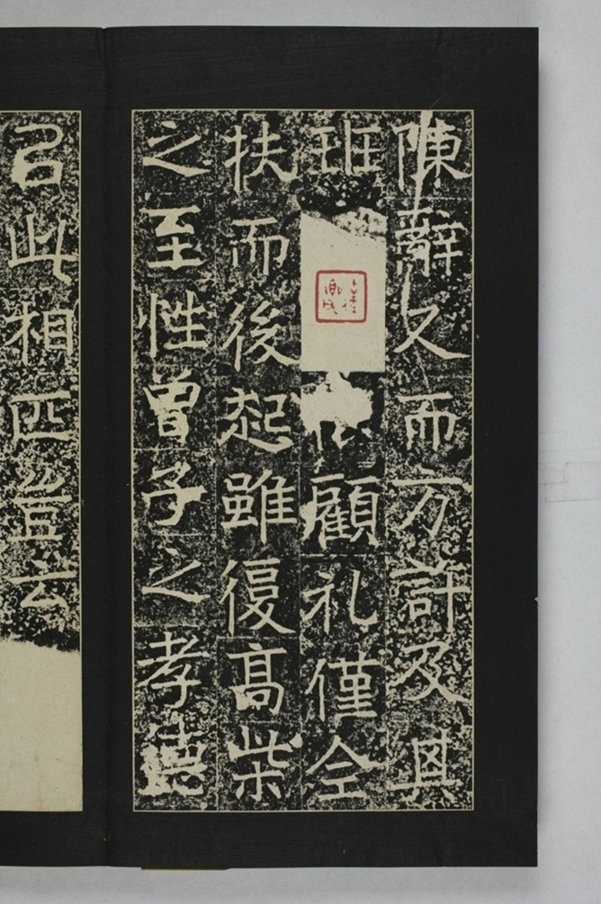 陳辭久而方許及其
班顧礼僅全
扶而後起雖復高柴
之至性曾子之孝德
㠯此相匹豈云